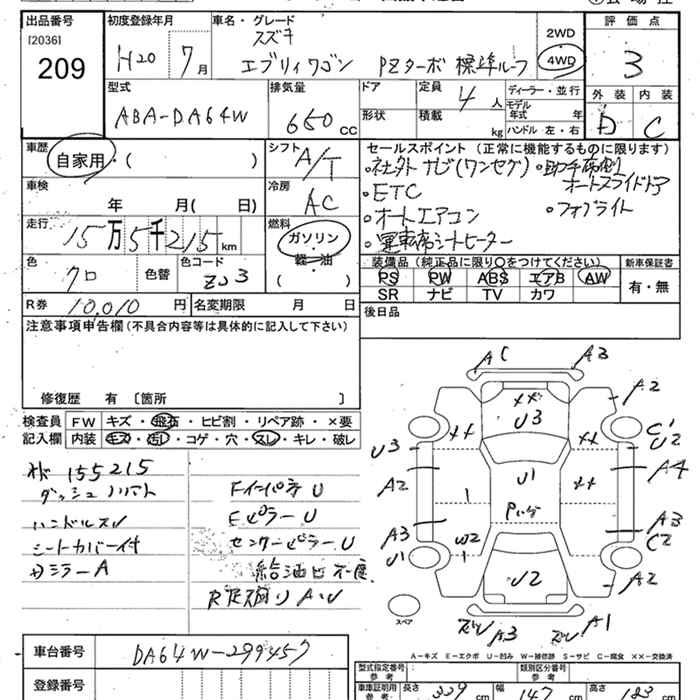 出品番号
[2036]
209
初度登録年月
H20 7月
車名・グレード
スズキ
エブリィワゴン PZターボ 標準ルーフ
2WD
4WD
評価点
3
型式
ABA-DA64W
排気量
660 cc
ドア
形状
定員
4人
積載
kg
ディーラー・並行
モデル年式 年
ハンドル 左・右
外装 内装
D C
車歴
自家用・( )
シフト
A/T
車検
年 月( 日)
冷房
AC
走行
15万5千215km
燃料
ガソリン
軽・油
( )
色
クロ
色替
色コード
ZJ3
R券 10,010円
名変期限 月 日
セールスポイント(正常に機能するものに限ります)
・社外ナビ(ワンセグ)
・助手席側オートスライドドア
・ETC
・オートエアコン
・フォグライト
・運転席シートヒーター
装備品(純正品に限り○をつけてください)
PS PW ABS エアB AW
SR ナビ TV カワ
新車保証書
有・無
後日品
注意事項申告欄(不具合内容等は具体的に記入して下さい)
修復歴 有〔箇所 〕
検査員記入欄
FW キズ・飛石・ヒビ割・リペア跡・×要
内装 キズ・汚レ・コゲ・穴・スレ・キレ・破レ
155215
ダッシュ
ハンドルスレ
シートカバー付
ミラーA
Fインパネ U
Fピラー U
センターピラー U
AC A3
A2
××
U3
C1
U2
U3
A2
××
××
A4
U1
A3
U1
W2
A3
C2
U2
A2
スペア
A3
A1
A-キズ E-エクボ U-凹み W-補修跡 S-サビ C-腐食 ××-交換済
車台番号 DA64W-299457
登録番号
型式指定番号 参考
類別区分番号 参考
車庫証明用 参考
長さ 339cm
幅 147cm
高さ 183cm